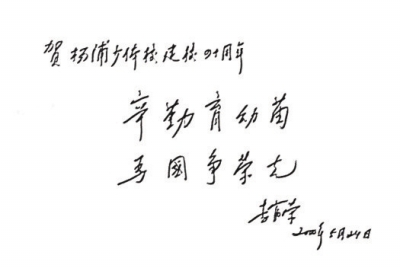 贺杨浦少体校建校四十周年
辛勤育幼苗
为國争荣光
2000年5月24日